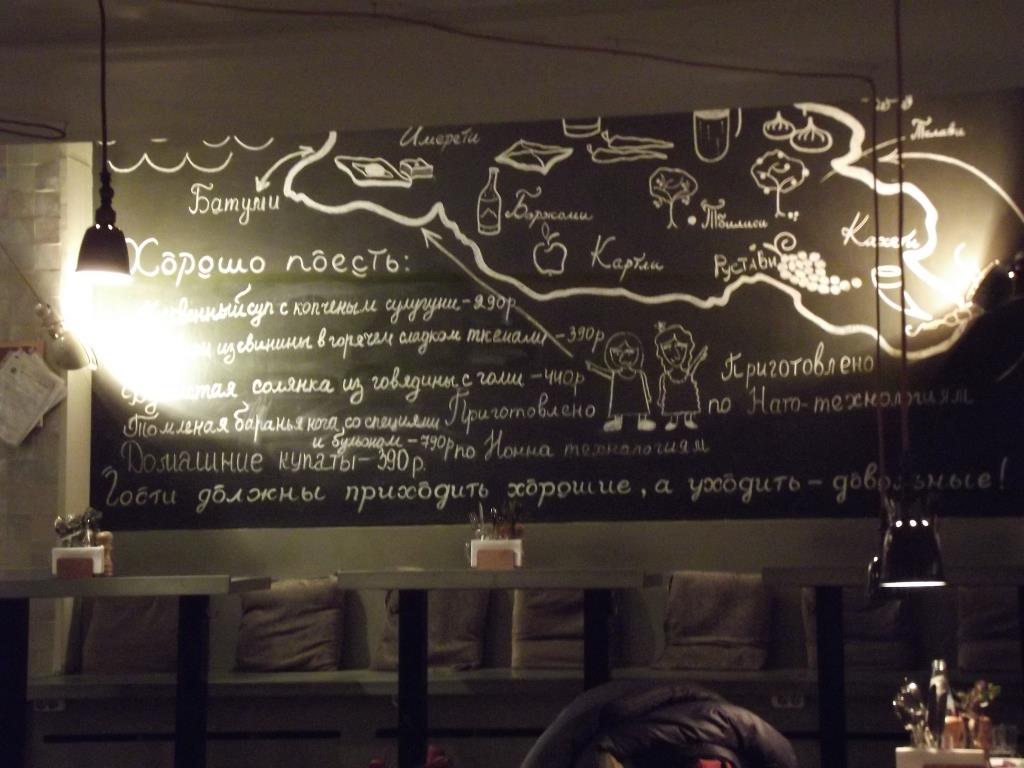 Имерети
Телави
Батуми
Боржоми
Тбилиси
Кахети
Картли
Рустави
Хорошо поесть:
суп с копченым сулугуни - 290р
из свинины в горячем сладком ткемали - 390р
солянка из говядины с
Приготовлено
Томленая баранья нога со специями
Приготовлено
по Нато-технологиям
и бульоном - 790р
по Нонна технологиям
Домашние купаты - 390р.
Гости должны приходить хорошие, а уходить - довольные!